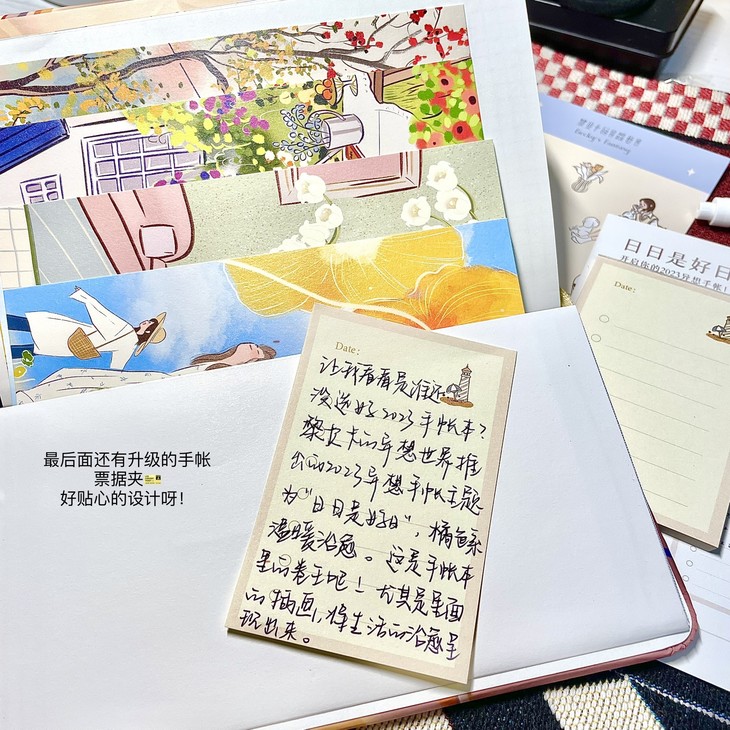 最后面还有升级的手帐
票据夹
好贴心的设计呀!
Becky's Fantasy
日日是好日
开启你的2023异想手帐!
Date:
Date:
让我看看是谁还
没选好2023手帐本?
黎立卡的异想世界推
出的2023异想手帐主题
为"日日是好日",橘色系
温暖治愈。这是手帐本
里的卷王吧!尤其是里面
的插画,将生活的治愈呈
现出来。